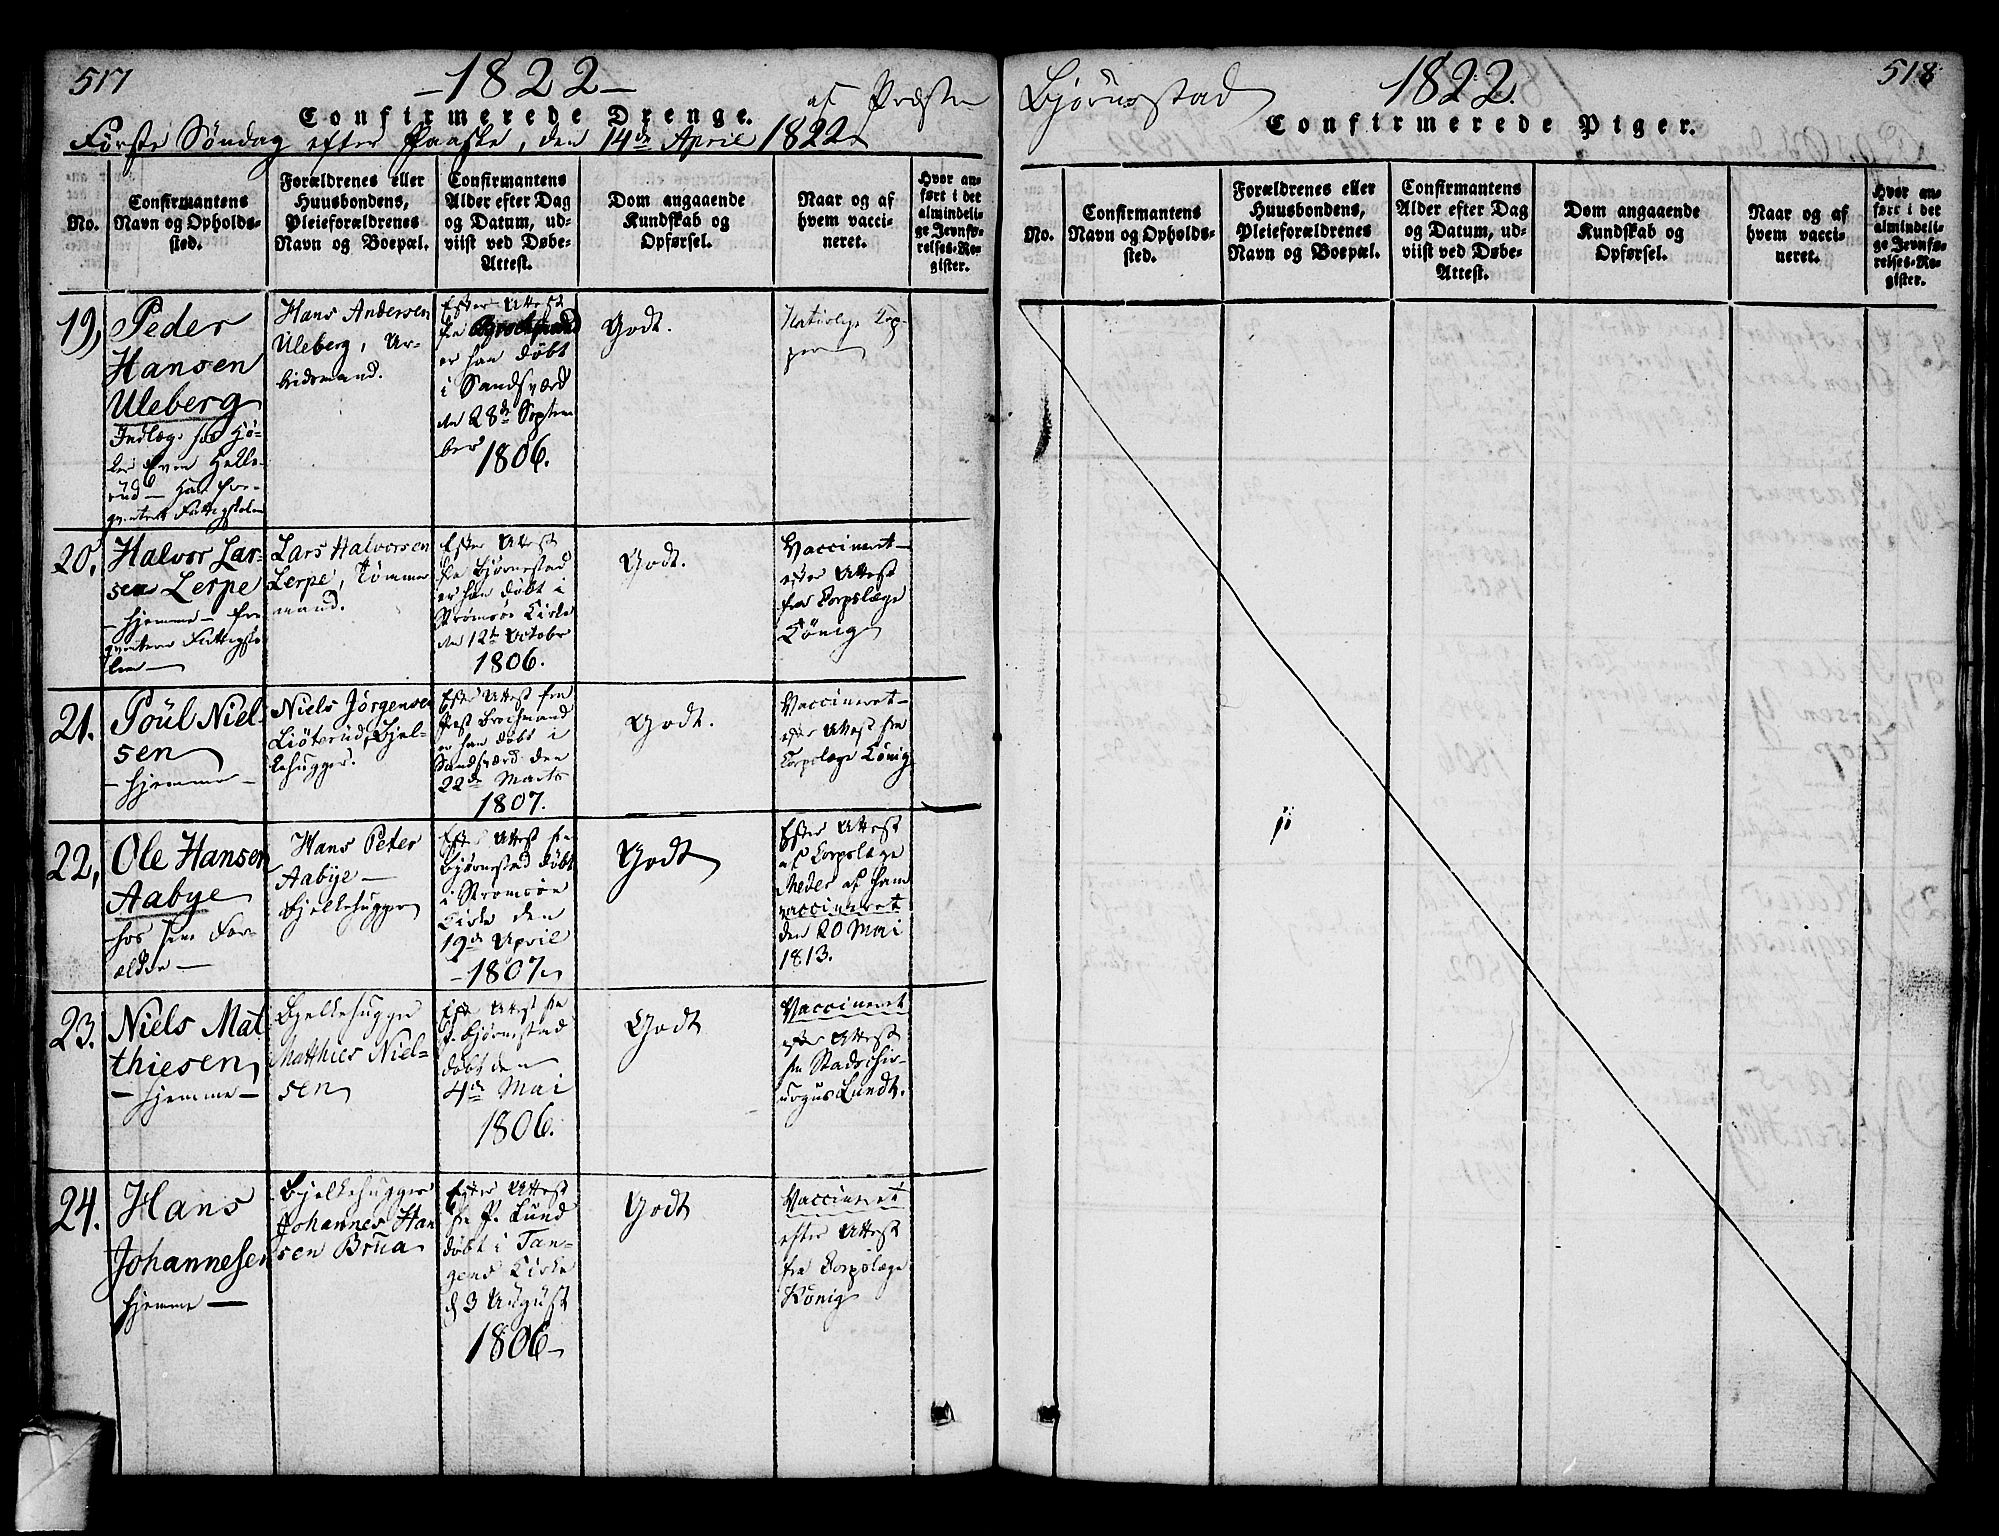 517
-1822-
Confirmerede Drenge.
af Præsten
Første Søndag efter Paaske, den 14de April 1822
No.
Confirmantens
Navn og Opholds-
sted.
Forældrenes eller
Huusbondens,
Pleieforældrenes
Navn og Boepæl.
Confirmantens
Alder efter Dag
og Datum, ud-
viist ved Døbe-
Attest.
Dom angaaende
Kundskab og
Opførsel.
Naar og af
hvem vacci-
neret.
Hvor an-
ført i det
almindeli-
ge Jevnfø-
relses-Re-
gister.
19,
Peder
Hansen
Uleberg
Indlæg hos
Even Helle-
rud - har fre-
qventert Fattigskolen
Hans Andersen
Uleberg, Ar-
beidsmand.
Efter Attest
fra Brochmand
er han døbt
i Sandsværd
den 28de Septem
ber
1806.
Godt.
Naturlige Kop-
per
20,
Halvor Lar-
sen Lerpe
- hjemme - fre-
qventere Fattigsko-
len -
Lars Halvorsen
Lerpe, Tømmer
mand.
Efter Attest
fra Bjørnestad
er han døbt i
Strømsøe Kirke
den 12te October
1806.
Godt.
Vaccineret -
efter Attest
fra Corpslæge
König
21.
Poül Niel-
sen
- hjemme -
Niels Jørgensen
Bjel-
kehugger.
Efter Attest fra
Præst Brochmand
er han døbt i
Sandsværd den
22de Marts
1807.
Godt.
Vaccineret -
efter Attest fra
Corpslæge König
22,
Ole Hansen
Aabye
- hos sine For-
ældre -
Hans Peter
Aabye -
Bjelkehugger
Efter Attest fra
Bjørnestad døbt
i Strømsøe
Kirke den
19de April
- 1807
Godt
Efter Attest
af Corpslæge
Meder af ham
vaccineret
den 20 Mai
1813.
23.
Niels Mat
thiesen
- hjemme -
Bjelkehugger
Matthies Niel-
sen
Efter Attest fra
P. Bjørnestad
døbt den
4de Mai
1806.
Godt
Vaccineret
efter Attest
fra Stadschir-
urgus Lundt.
24.
Hans
Johannesen
hjemme -
Bjelkehugger
Johannes Han
sen Brüa
Efter Attest
fra P. Lund
døbt i Tan-
gens Kirke
d 3 August
1806 -
Godt
Vaccineret
efter Attest
fra Corpslæge
König
Bjørnestad
1822.
518
Confirmerede Piger.
No.
Confirmantens
Navn og Opholds-
sted.
Forældrenes eller
Huusbondens,
Pleieforældrenes
Navn og Boepæl.
Confirmantens
Alder efter Dag
og Datum, ud-
viist ved Døbe-
Attest.
Dom angaaende
Kundskab og
Opførsel.
Naar og af
hvem vacci-
neret.
Hvor an-
ført i det
almindeli-
ge Jevnfø-
relses-Re-
gister.